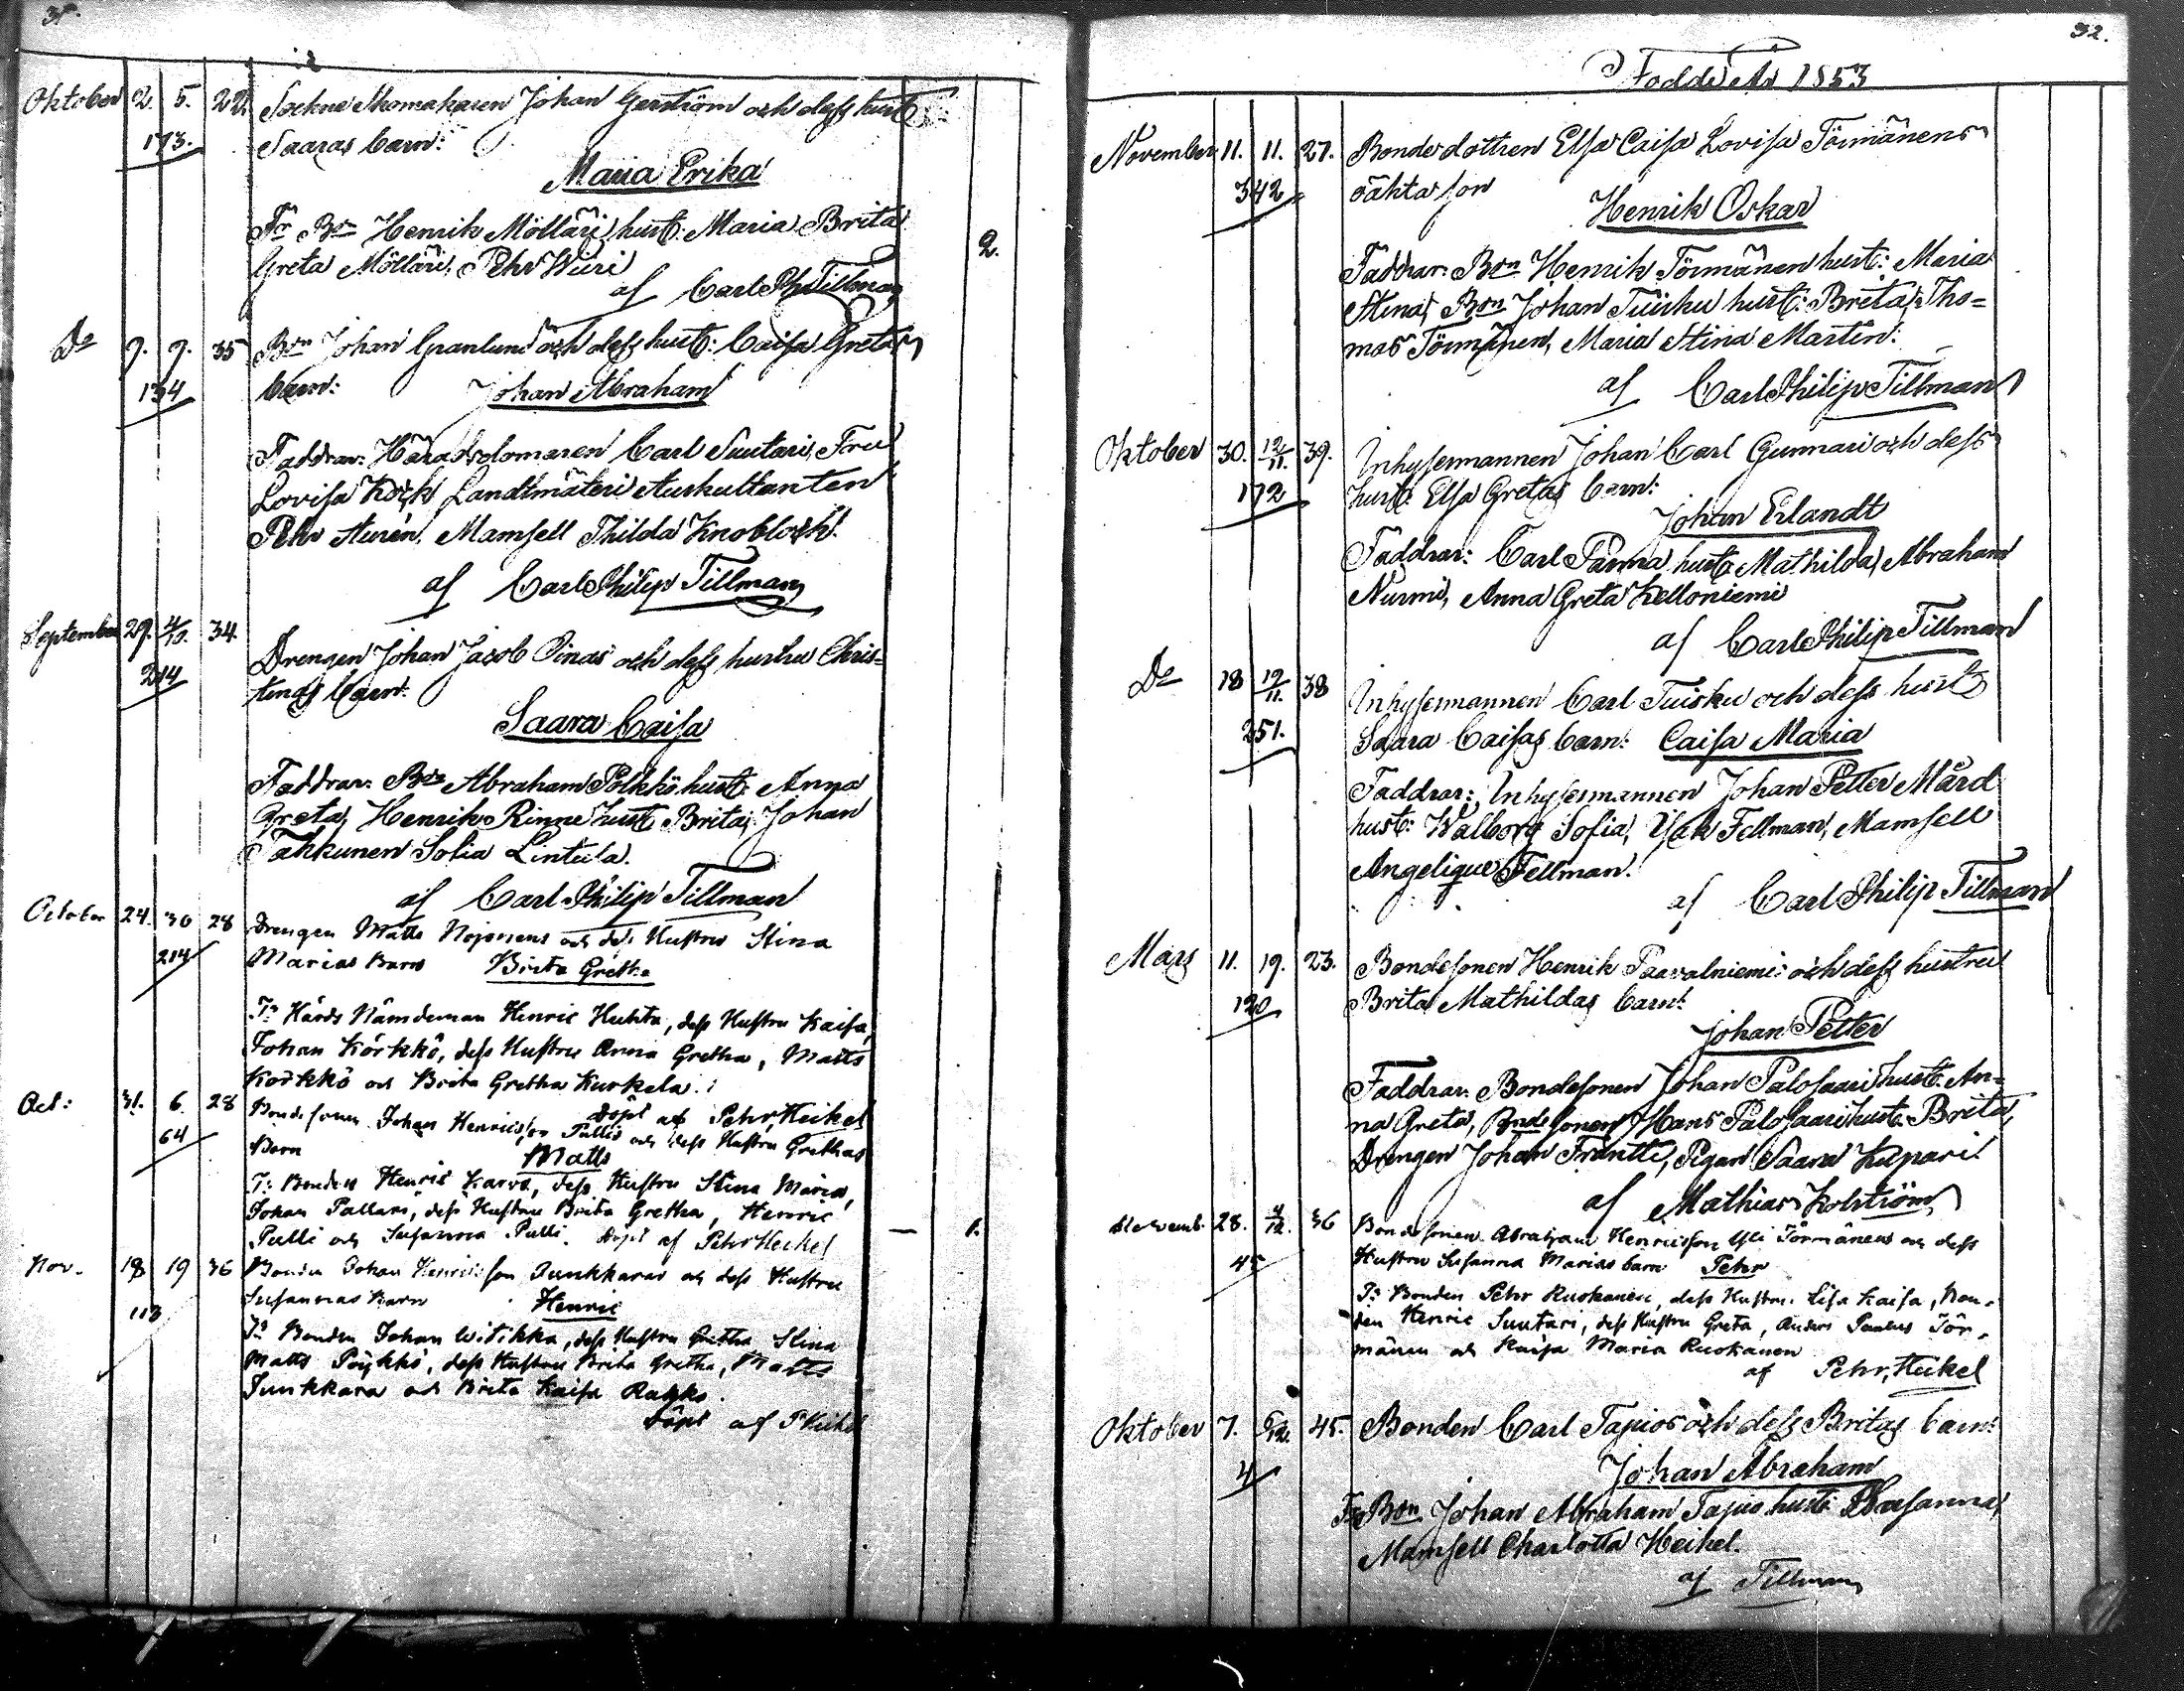 31.
Oktober 2. 5. 22. Sockne Skomakaren Johan Gerström och dess hust:
173. Saaras barn:
Maria Erika
Fr Bon Henrik Mölläri, hust: Maria Brita
Greta Mölläri, Pehr Wiiri
2.
af Carl Ph Tillman
Do 9. 9. 35 Bon Johan Granlund och dess hust: Caisa Gretas
134 barn: Johan Abraham
Faddrar: Häradsdomaren Carl Suutari, Fru
Lovisa Kock, Landtmäteri Auskultanten
Pehr Aurén, Mamsell Thilda Knobloch.
af Carl Philip Tillman
September 29. 4/10. 34. Drengen Johan Jacob Oinas och dess hustru Chris-
214 tinas barn:
Saara Caisa
Faddrar: Bon Abraham Pölkkö hust: Anna
Greta, Henrik Rinne hust: Brita, Johan
Tahkunen Sofia Lintula.
af Carl Philip Tillman
October 24. 30 28 Drengen Matts Nojonens och dess Hustru Stina
214 Marias Barn Brita Gretha
Fr Härds Nämdeman Henric Huhta, dess Hustru Kaisa,
Johan Körkkö, dess Hustru Anna Gretha, Matts
Körkkö och Brita Gretha Kurkela.
Döpt af Pehr Heikel
Oct: 31. 6. 28 Bondesonen Johan Henricsson Pullis och dess Hustru Grethas
64 Barn Matts
F: Bonden Henric Karvo, dess Hustru Stina Maria,
Johan Pallari, dess Hustru Brita Gretha, Henric
Pulli och Susanna Pulli. Döpt af Pehr Heikel — 1.
Nov. 18 19 36 Bonden Johan Henricsson Junkkaras och dess Hustru
113 Susannas Barn Henric
Fr Bonden Johan Witikka, dess Hustru Gretha Stina
Matts Pöykkö, dess Hustru Brita Gretha, Matts
Junkkara och Brita Kaisa
Döpt af P Heikel
32.
Födde År 1853
November 11. 11. 27. Bondedottren Elsa Caisa Lovisa Törmänens
342 oäkta son
Henrik Oskar
Faddrar: Bon Henrik Törmänen hust: Maria
Stina, Bon Johan Tuisku hust: Breta, Tho-
mas Törmänen, Maria Stina Martin:
af Carl Philip Tillman
Oktober 30. 12/11. 39. Inhysesmannen Johan Carl Gunnari och dess
172 hust: Elsa Gretas barn:
Johan Erlandt
Faddrar: Carl Panna hust: Mathilda, Abraham
Nurmi, Anna Greta Kelloniemi
af Carl Philip Tillman
Do 18 19/11. 38 Inhysesmannen Carl Tuisku och dess hust:
251. Saara Caisas barn: Caisa Maria
Faddrar: Inhysesmannen Johan Petter Mård
hust: Walborg Sofia, Isak Fellman, Mamsell
Angelique Fellman.
af Carl Philip Tillman
Mars 11. 19. 23. Bondesonen Henrik Paavalniemi och dess hustru
120 Brita Mathildas barn:
Johan Petter
Faddrar: Bondesonen Johan Palosaari hust: An-
na Greta, Bondesonen Hans Palosaari hust: Brita,
Drengen Johan Frantti, Pigan Saara Kupari
af Mathias Kolström
Novemb. 28. 4/12. 36 Bondesonen Abraham Henricsson Yli Törmänens och dess
45 Hustru Susanna Marias barn Pehr
F: Bonden Pehr Ruokanen, dess Hustru Lisa Kaisa, Bon-
den Henric Suutari, dess Hustru Greta, Anders Paulus Tör-
mänen och Kaisa Maria Ruokanen
af Pehr Heikel
Oktober 7. 6/12. 45. Bonden Carl Tapios och dess Britas barn:
4 Johan Abraham
Fr Bon Johan Abraham Tapio hust: Susanna,
Mamsell Charlotta Heikel.
af Tillman